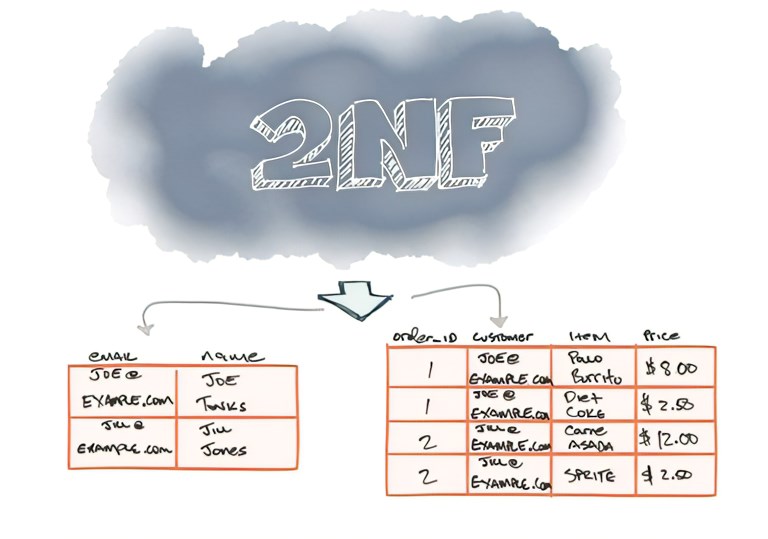 2NF
email name
JOE@ JOE
EXAMPLE.com Tonks
JILL@ JILL
EXAMPLE.com Jones
order_ID customer item Price
1 JOE@ EXAMPLE.com Burrito $8.00
1 JOE@ EXAMPLE.com Diet COKE $2.50
2 JILL@ EXAMPLE.com Carne ASADA $12.00
2 JILL@ EXAMPLE.com SPRITE $2.50